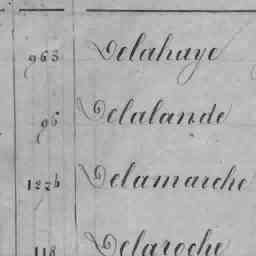 963 Delahaye
96 Delalande
1226 Delamarche
118 Delaroche